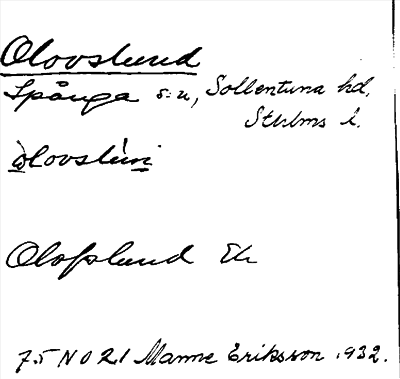 Olovslund
Spånga s:n, Sollentuna hd,
Sthlms l.
Olofslund Ek
75 N O 21 Manne Eriksson 1932.